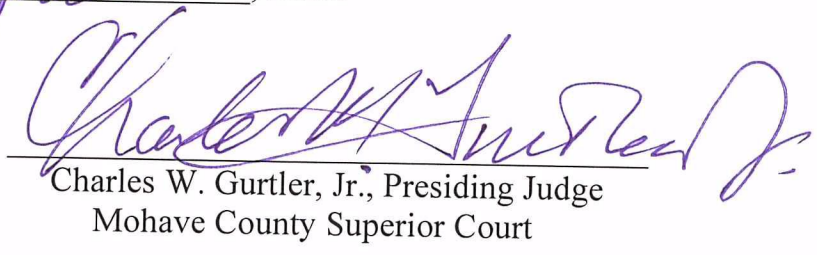 Charles W. Gurtler Jr.
Charles W. Gurtler, Jr., Presiding Judge
Mohave County Superior Court